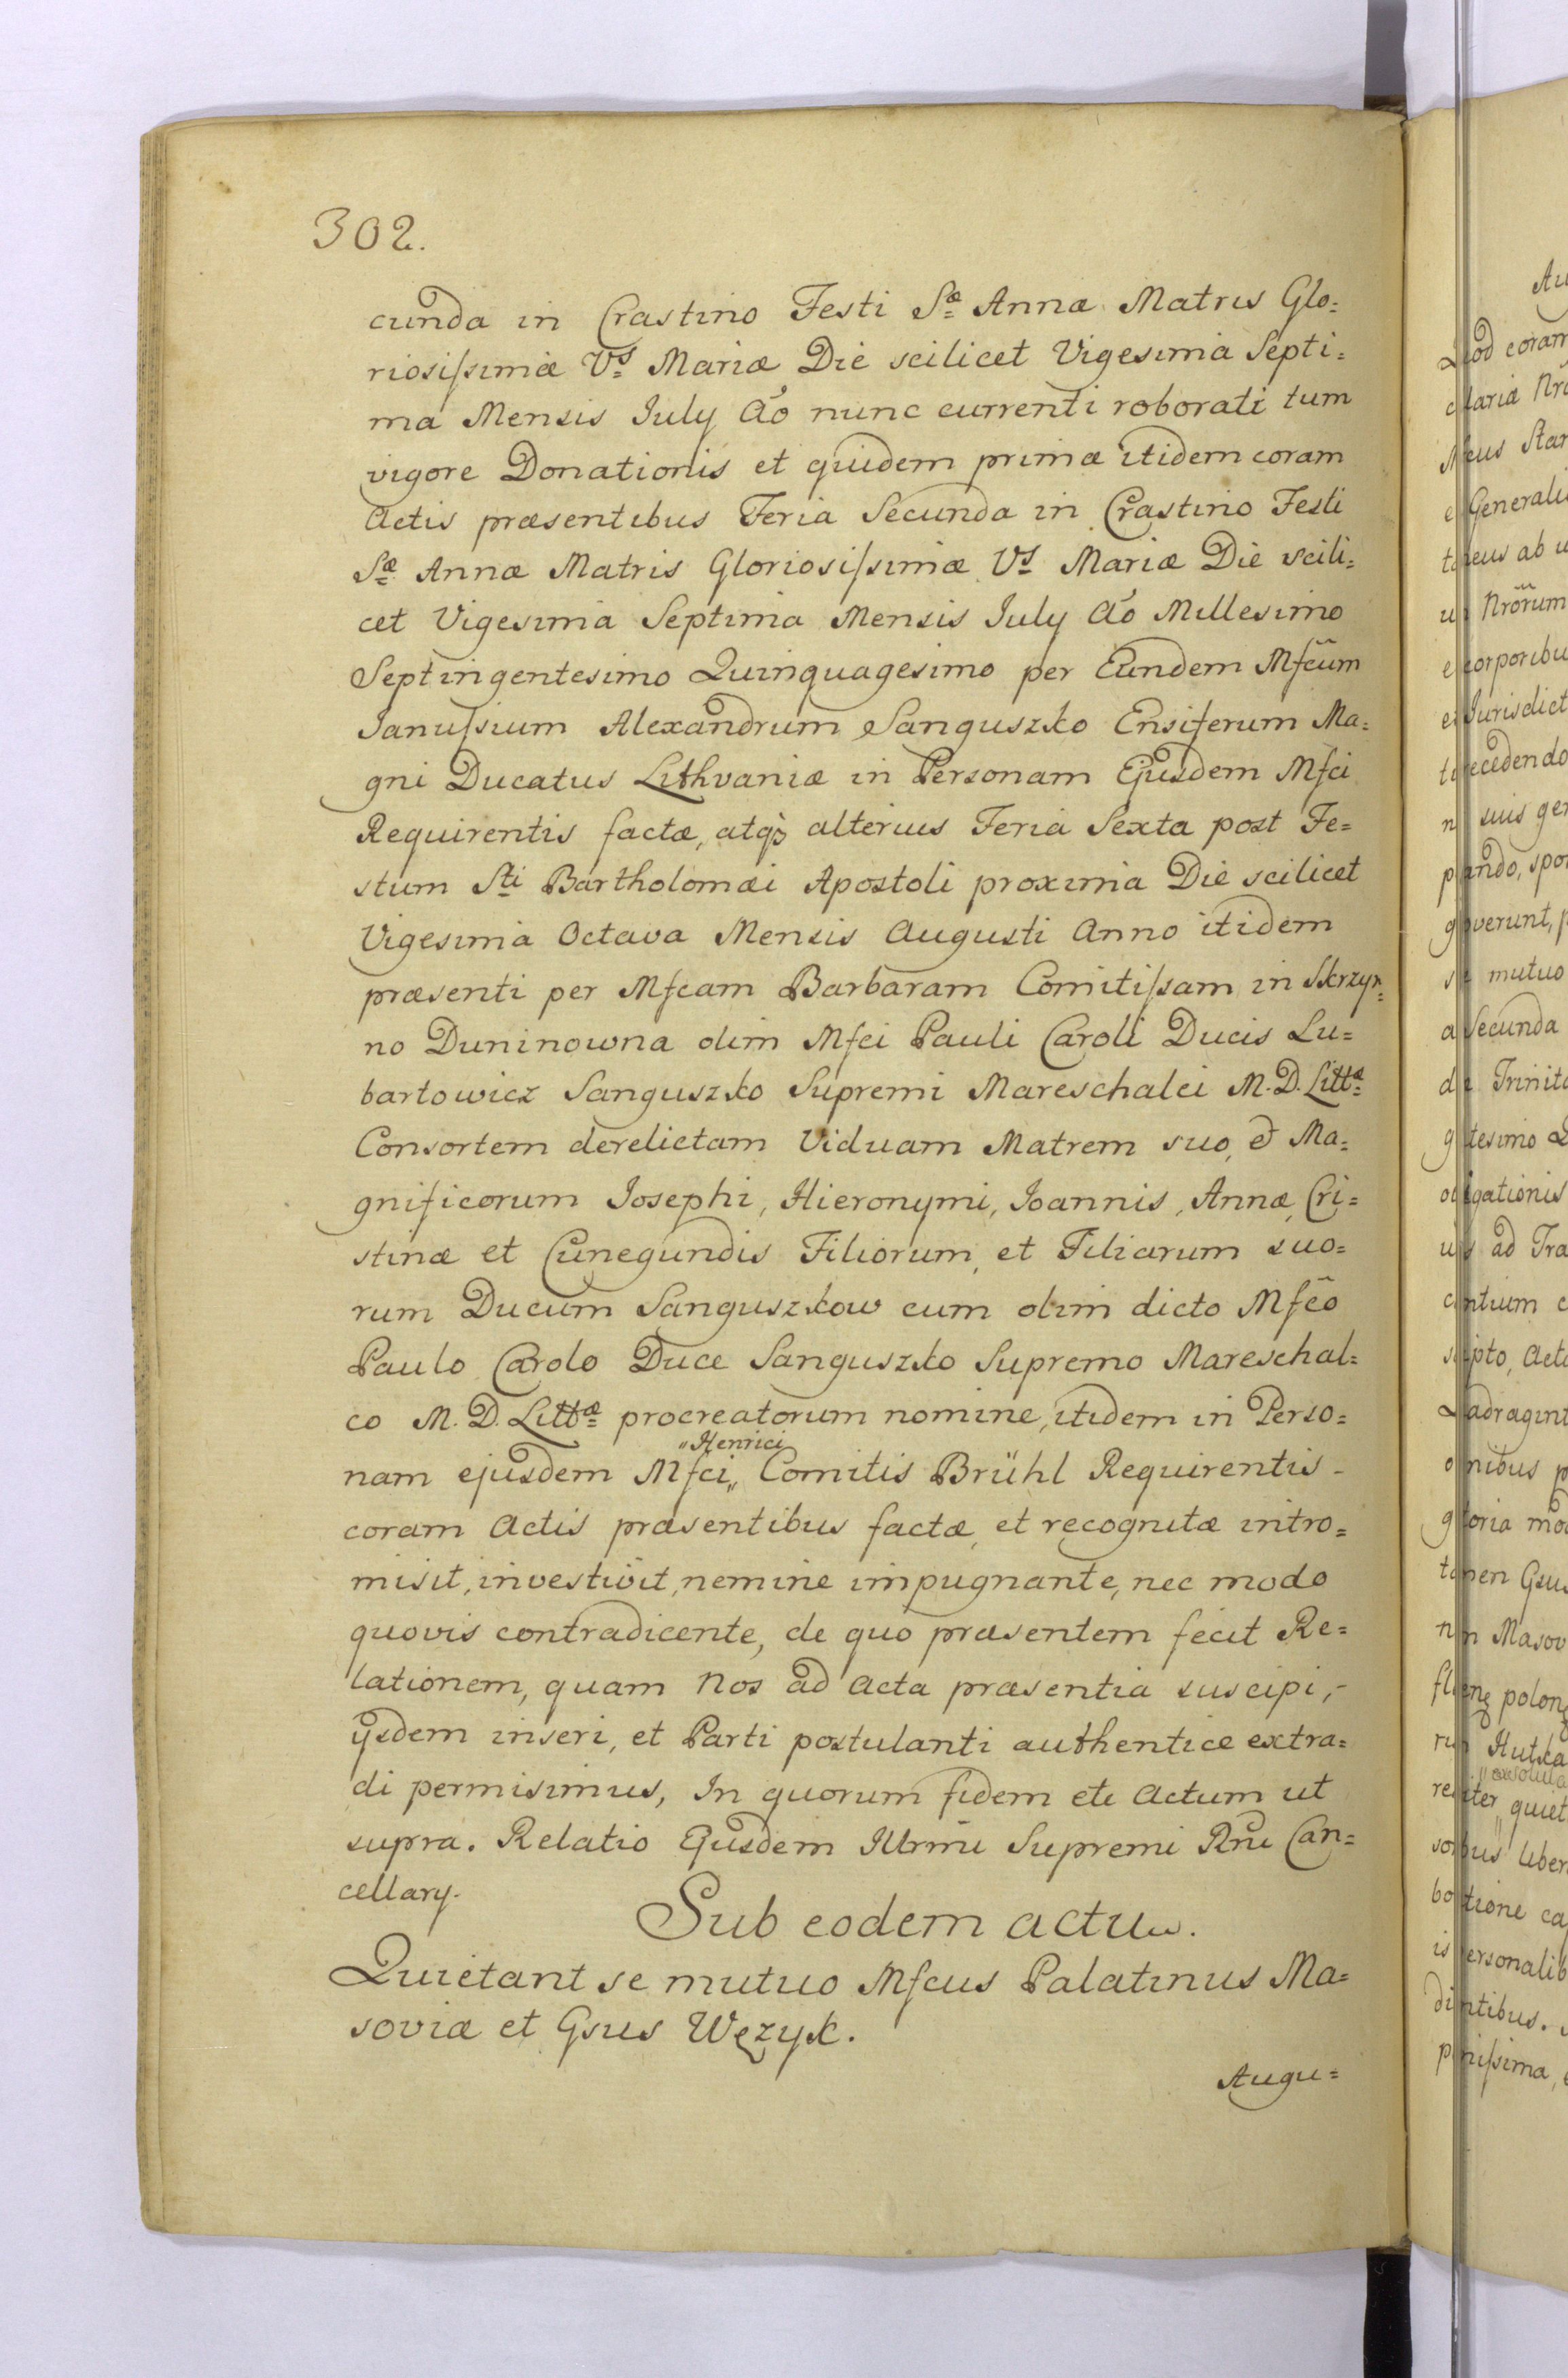 302.
cunda in Crastino Festi Sæ Annæ Matris Glo=
riosissimæ Vs Mariæ Die scilicet Vigesima Septi=
ma Mensis July Ao nunc currenti roborati tum
vigore Donationis et quidem primæ itidem coram
Actis præsentibus Feria Secunda in Crastino Festi
Sæ Annæ Matris Gloriosissimæ Vs Mariæ Die scili=
cet Vigesima Septima Mensis July Ao Millesimo
Septingentesimo Quinquagesimo per Eundem Mfcum
Janussium Alexandrum Sanguszko Ensiferum Ma=
gni Ducatus Lithvaniæ in Personam Ejusdem Mfci
Requirentis factæ, atqȝ alterius Feria Sexta post Fe=
stum Sti Bartholomæi Apostoli proxima Die scilicet
Vigesima Octava Mensis Augusti Anno itidem
præsenti per Mfcam Barbaram Comitissam in Skrzyn=
no Duninowna olim Mfci Pauli Caroli Ducis Lu=
bartowicz Sanguszko Supremi Mareschalci M. D. Littæ
Consortem derelictam Viduam Matrem suo, et Ma=
gnificorum Josephi, Hieronymi, Joannis, Annæ, Cri=
stinæ et Cunegundis Filiorum, et Filiarum suo=
rum Ducum Sanguszkow cum olim dicto Mfco
Paulo Carolo Duce Sanguszko Supremo Mareschal=
co M. D. Littæ procreatorum nomine, itidem in Perso=
"Henrici
nam ejusdem Mfci,, Comitis Brühl Requirentis -
coram Actis præsentibus factæ, et recognitæ intro=
misit, investivit, nemine impugnante, nec modo
quovis contradicente, de quo præsentem fecit Re=
lationem, quam Nos ad Acta præsentia suscipi, -
ijsdem inseri, et Parti postulanti authentice extra=
di permisimus, In quorum fidem etc Actum ut
supra. Relatio Ejusdem Illrmi Supremi Rni Can=
cellary.
Sub eodem actu.
Quietant se mutuo Mfcus Palatinus Ma=
soviæ et Gsus Węzyk.
Augu=